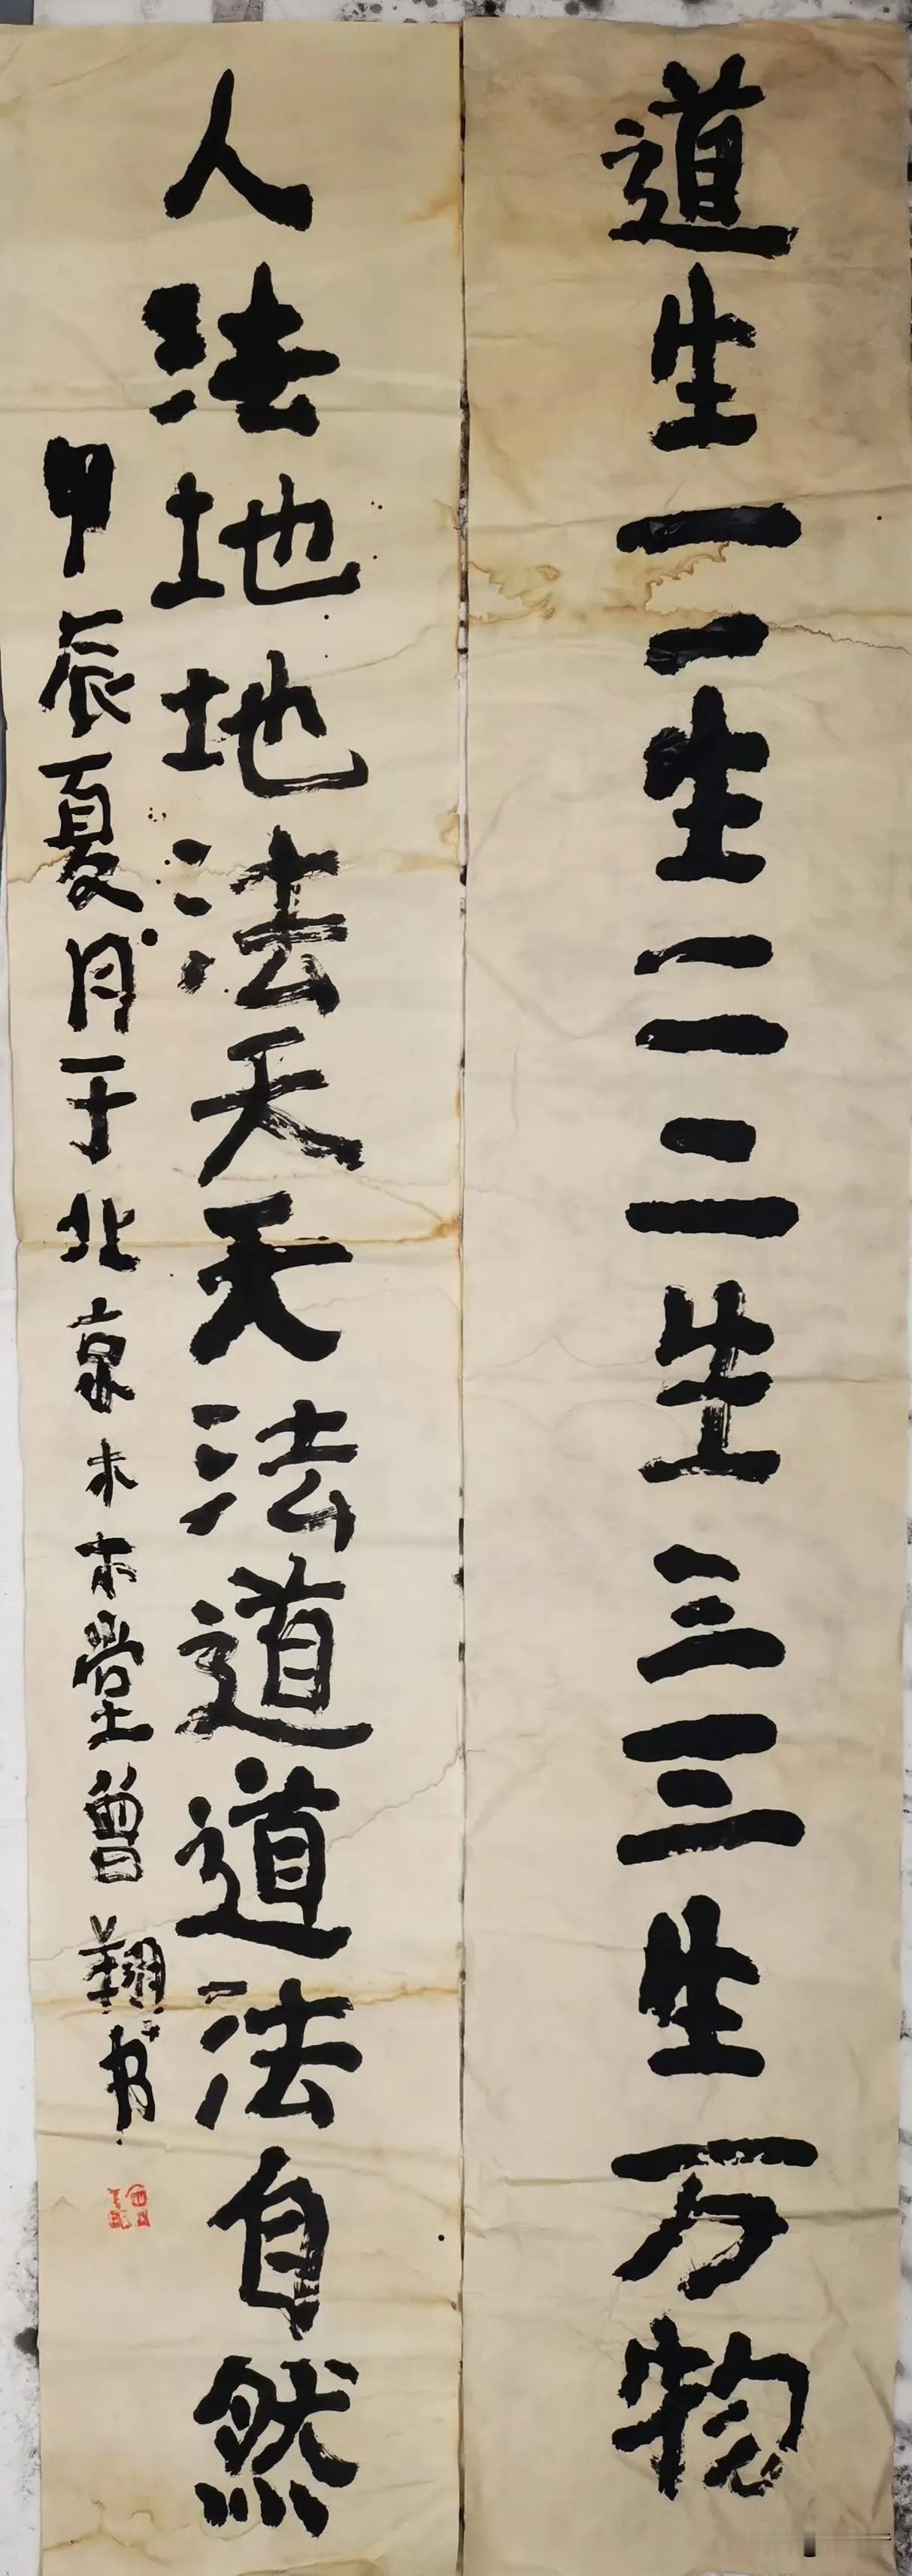 道生一一生二二生三三生万物
人法地地法天天法道道法自然
甲辰夏月于北京木木堂曾翔书